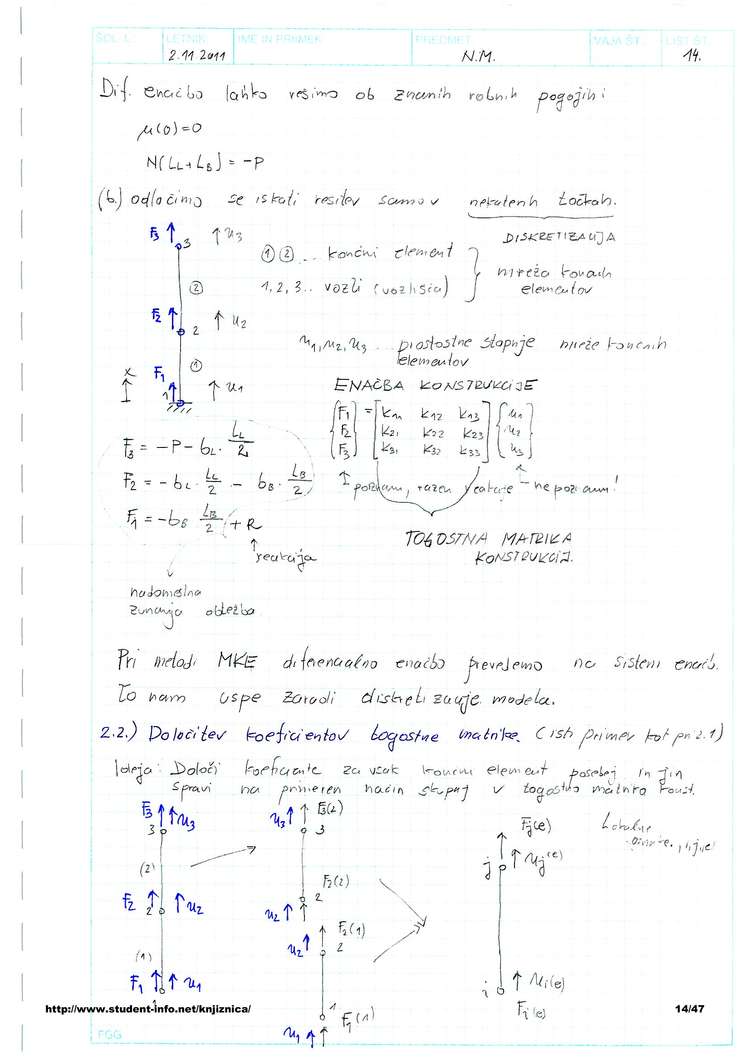 ŠOL. L. LETNIK IME IN PRIIMEK PREDMET VAJA ŠT. LIST ŠT.
2.11 2011 N.M. 14.
Dif. enačbo lahko rešimo ob znanih robnih pogojih:
u(0)=0
N(LL+LB)=-P
(b.) odločimo se iskati rešitev samo v nekaterih točkah.
DISKRETIZACIJA
F3 3 u3
① ② ... končni element
1, 2, 3 ... vozli (vozlišča)
mreža končnih
elementov
② F2 2 u2
u1, u2, u3 ... prostostne stopnje mreže končnih
elementov
① x F1 1 u1
ENAČBA KONSTRUKCIJE
F1 = k11 k12 k13 u1
F2 k21 k22 k23 u2
F3 k31 k32 k33 u3
F3 = -P - bL · LL/2
F2 = -bL · LL/2 - bB · LB/2
F1 = -bB LB/2 + R
poznam, razen reakcije
ne poznam!
reakcija
TOGOSTNA MATRIKA
KONSTRUKCIJ.
nadomestna
zunanja obtežba
Pri metodi MKE diferencialno enačbo prevedemo na sistem enačb.
To nam uspe zaradi diskretizacije modela.
2.2.) Določitev koeficientov togostne matrike. (isti primer kot pri 2.1)
Ideja: Določi koeficiente za vsak končni element posebej in jih
spravi na primeren način skupaj v togostno matriko konst.
F3 u3 3
(2)
F2 2 u2
(1)
F1 u1
u3 F3(2) 3
F2(2) 2 u2
F2(1) u2 2
1 F1(1) u1
Fj(e) j uj(e)
i ui(e) Fi(e)
Lokalne
http://www.student-info.net/knjiznica/ 14/47
FGG